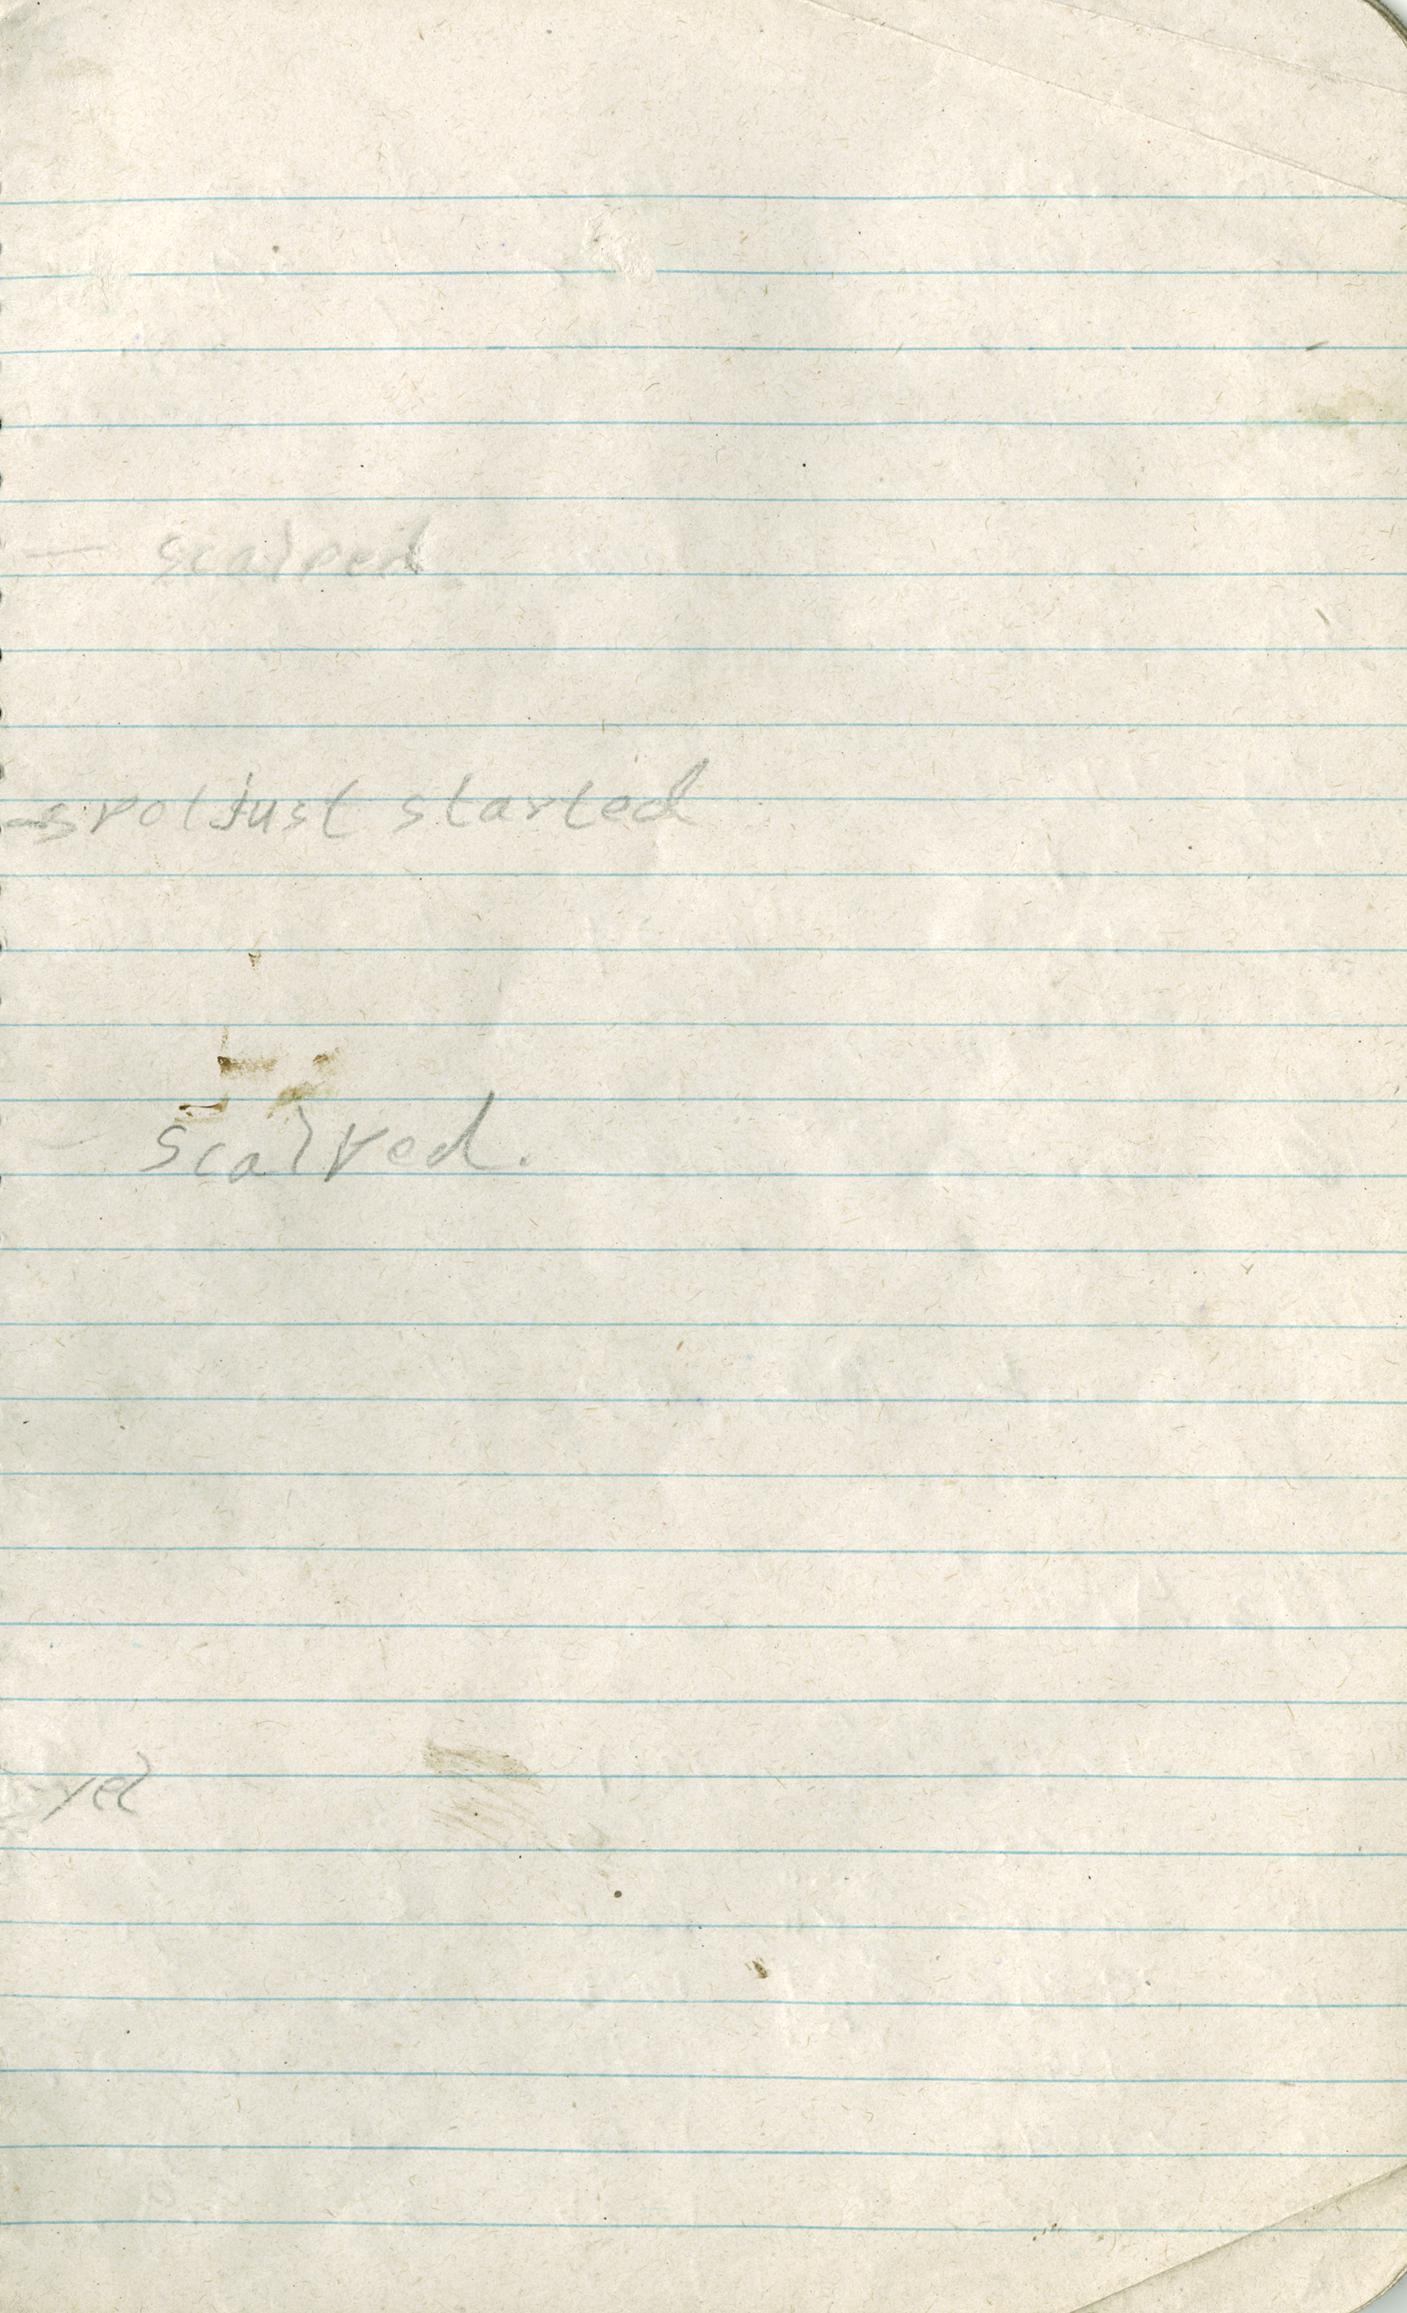 — scalped
- spot just started
- scalped.
- yet